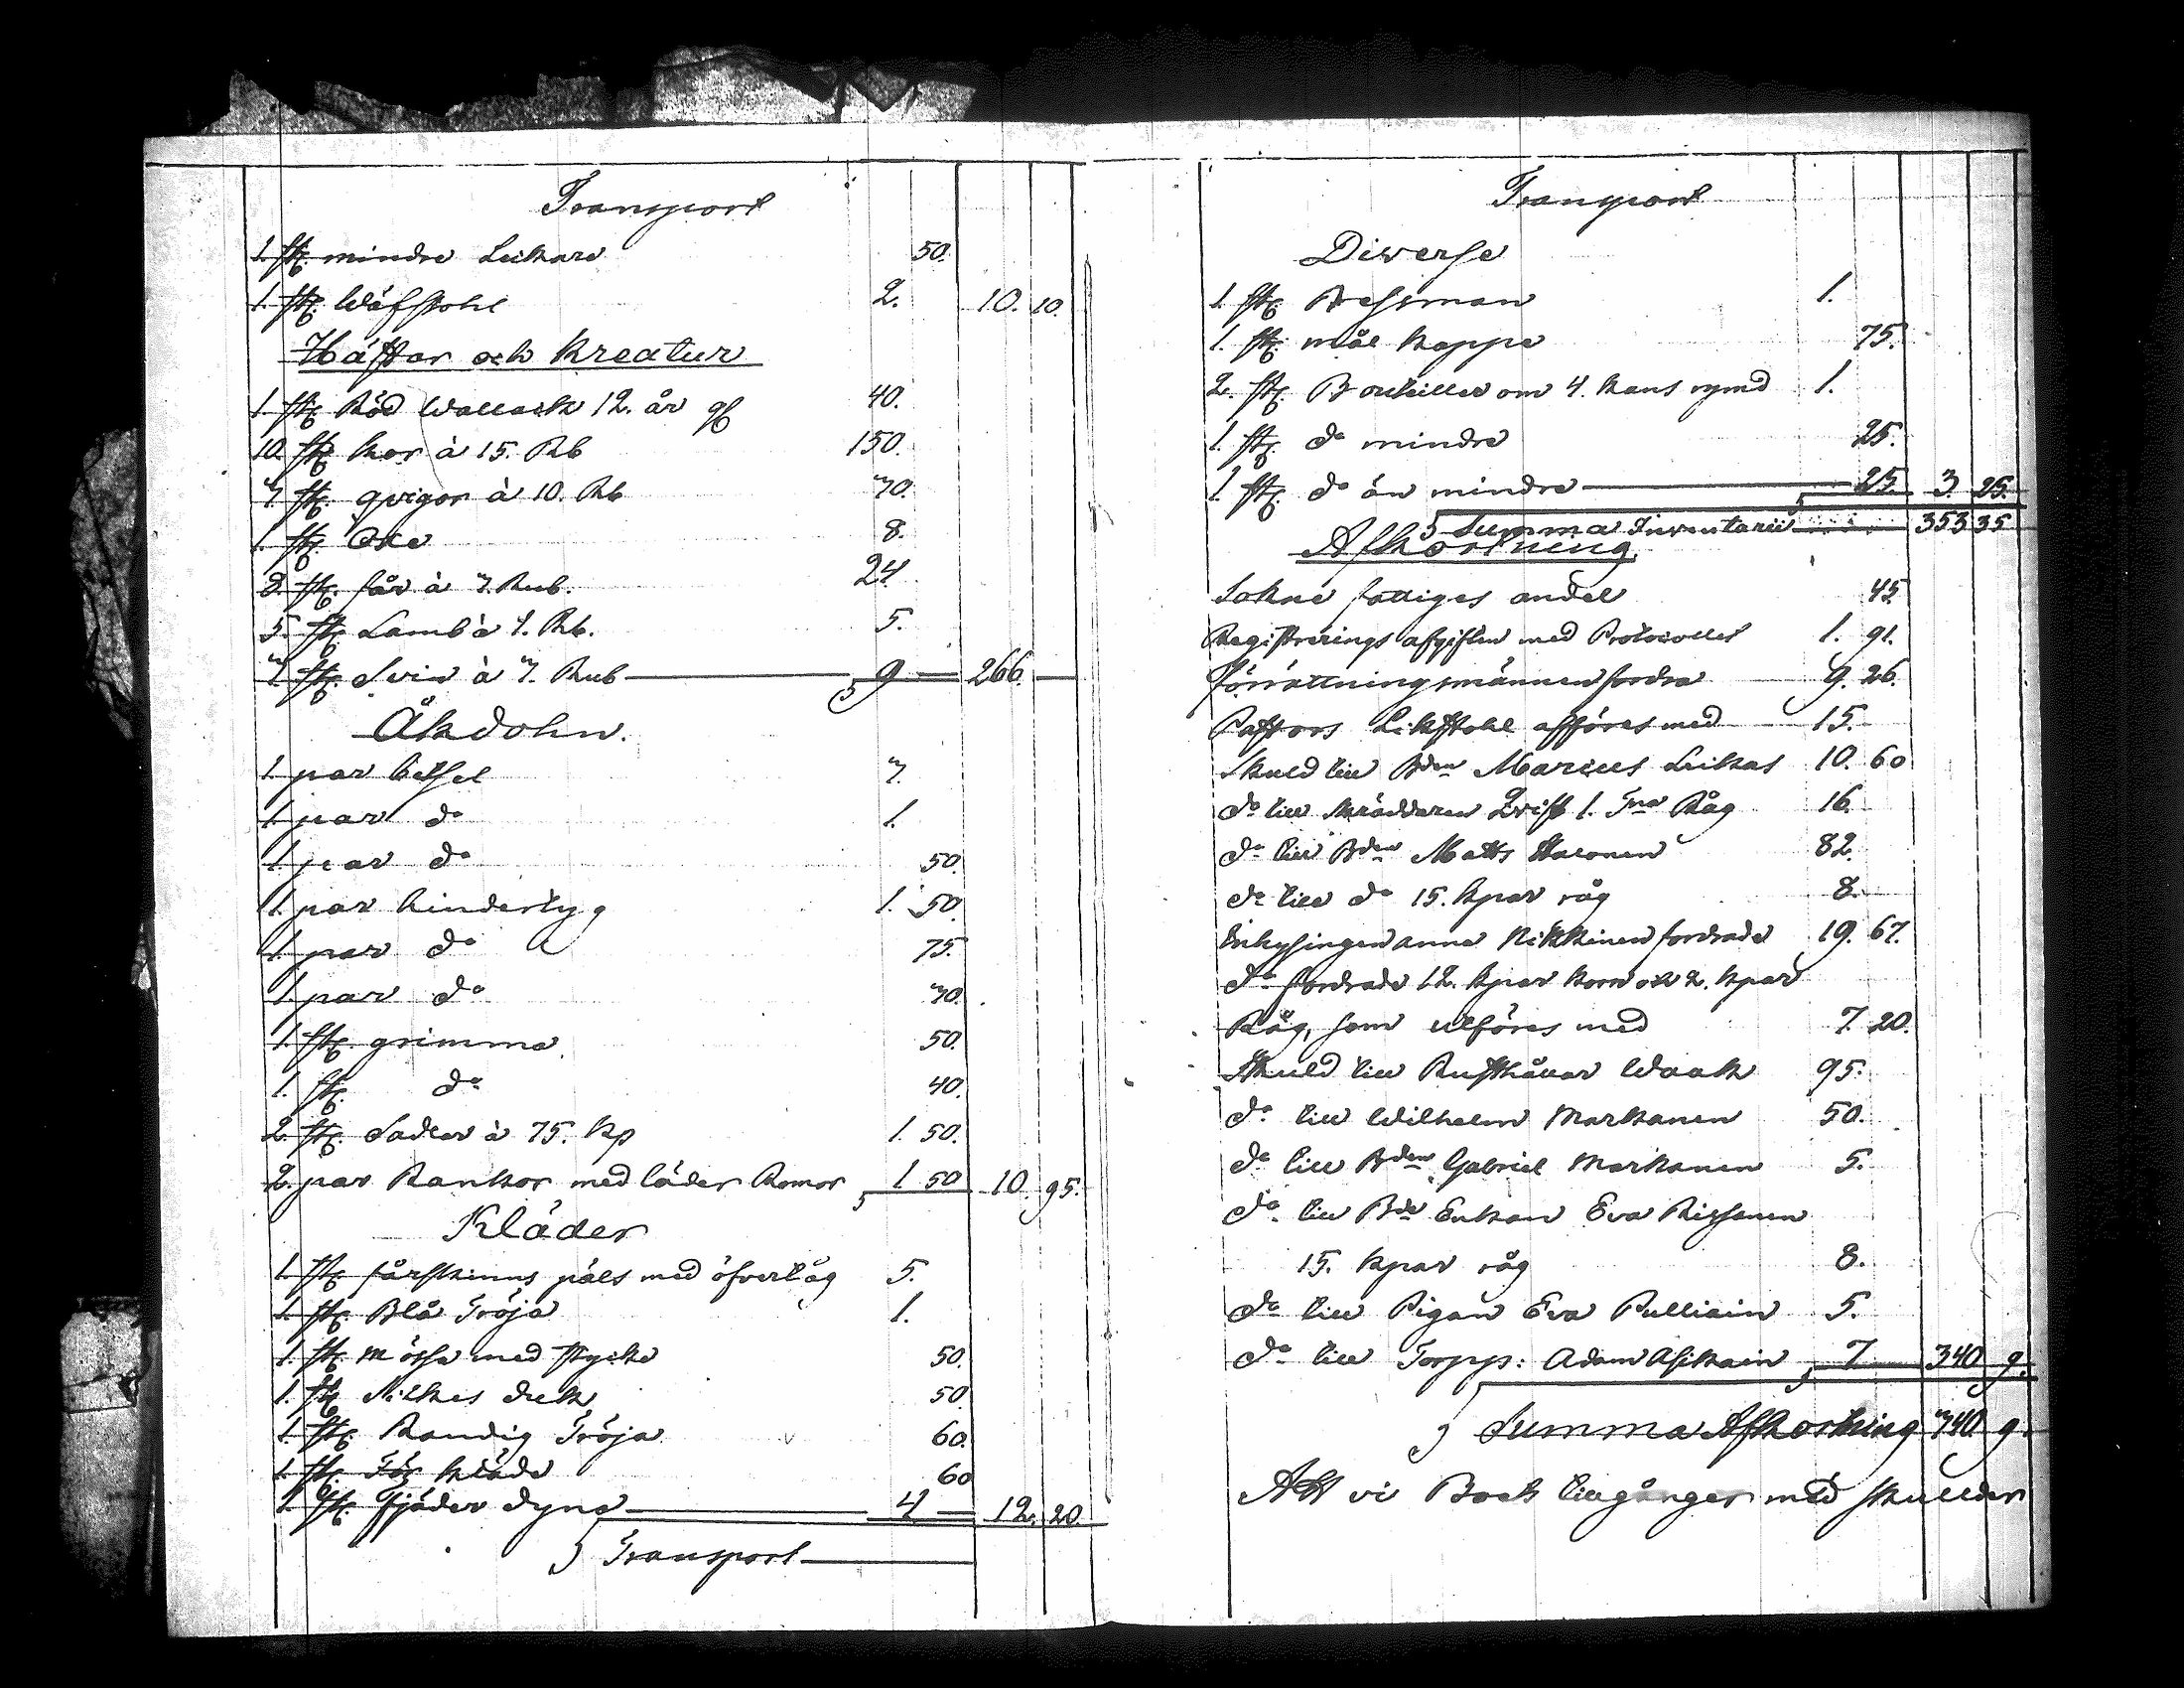 Transport
1. st. mindre Leikare 50.
1. st. Wäfstohl 2. 10. 10.
Hästar och Kreatur
1. st. Röd Wallack 12. år gl 40.
10. st. kor à 15. Rb 150.
3 st. qvigor à 10. Rb 30.
1. st. Oxe 8.
8. st. får à 3. Rub. 24
5. st. Lamb à 1. Rb. 5.
3. st. Svin à 3. Rub 9 266.
Åkdohn.
1. par betsel 3.
1. par do 1.
1. par do 50.
1. par hindertyg 1. 50.
1. par do 75.
1. par do 30.
1. st. grimma 50.
1. st. do 40.
2. st. Sadlar à 75. Kp 1. 50.
2. par Rankor med läder Romor 1 50 10. 95.
Kläder
1. st. fårskinns päls med öfvertåg 5.
1. st. Blå Tröja 1.
1. st. Mössa med stycke 50.
1. st. Silkes duk 50.
1. st. Randig Tröja 60.
1. st. kläde 60
1. st. fjäder dyna 4 12. 20.
Transport
Transport
Diverse
1. st. Bessman 1.
1. st. mål kappe 75.
2. st. Bouteiller om 4. kans rymd 1.
1. st. do mindre 25.
1. st. do än mindre 25. 3. 25.
Summa Inventarii 353 35
Afkortning
Sokne fattiges andel 45
Registrerings afgiften med Protocollet 1. 91.
förrättningsmännen fordra 9. 26.
Pastors Likstohl afföres med 15.
Skuld till Bden Marcus Leikas 10. 60
do till Skräddaren Qvist 1. Tna Råg 16.
do till Bden Matts Halonen 82.
do till do 15. kpar råg 8.
Inhysingen anna Nikkinen fordrade 19. 67.
do fordrade 12. kpar korn och 2. kpar
Råg, som utföres med 7. 20.
Skuld till Rusthållar Waak 95.
do till Wilhelm Markanen 50.
do till Bden Gabriel Markanen 5.
do till Bde Enkan Eva Rissanen
15. kpar råg 8.
do till Pigan Eva Pulliain 5.
do till Torpp: Adam Asikain 7 340 9.
Summa Afkortning 340 9.
Att vi Boets tillgångar med skullder